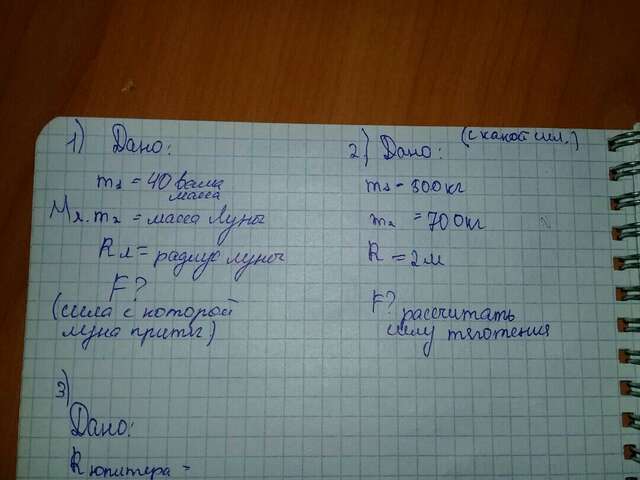 1) Дано:
m₁ = 40 ваша
масса
Mл. m₂ = масса Луны
Rл = радиус луны
F?
(сила с которой
луна притяг)
2) Дано:
(с какой сил.)
m₁ = 300кг
m₂ = 700кг
R = 2м
F? рассчитать
силу тяготения
3)
Дано:
R юпитера =